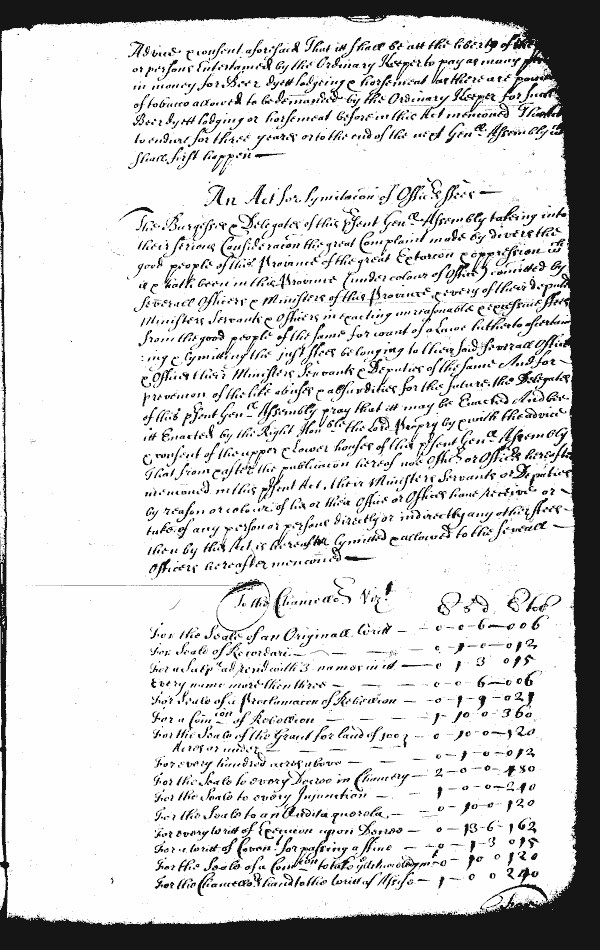 Advice & consent aforesaid That itt shall be att the liberty of
or persons Entertained by the Ordinary Keeper to pay as many
in money for Beer dyett lodgeing & horsemeat as there are
of tobacco allowed to be demanded by the Ordinary Keeper for such
Beer dyett lodging or horsemeat before in this Act menconed This Act
to endure for three yeares or to the end of the next Genll Assembly
shall first happen
An Act for Lymitacon of Officers ffees
The Burgesses & Delegates of this pſent Genll Assembly taking into
their serious Consideracon the great Complaint made by divers the
good people of this Province of the great Extorcon & oppression
is & hath been in this Province (under colour of Office) comitted by
severall Officers & Ministers of this Province & every of their deputies
Ministers Servants & Officers in exacting unreasonable & expressive ffees
from the good people of the same for want of a Law hitherto ascertain
ing & lymitting the just ffees belonging to their said severall Offices
& Officers their Ministers Servants & Deputies of the same And for
prevencon of the like abuses & absurdities for the future the Delegates
of this pſent Genll Assembly pray that itt may be Enacted And bee
itt Enacted by the Right Honble the Lord Propry by & with the advice
& consent of the upper & Lower houses of this pſent Genll Assembly
That from & after the publicacon hereof noe Officer or Officers hereafter
menconed in this pſent Act, their Ministers Servants or Deputies
by reason or colour of his or their Office or Offices have receive or
take of any person or persons directly or indirectly any other ffees
then by this Act is hereafter lymitted & allowed to the severall
Officers hereafter menconed
To the Chancellor Vizt £ S d £ tob
For the Seale of an Originall Writt — 0 – 0 – 6 – 006
For Seale of Recordari — 0 – 1 – 0 – 012
For a Subpa ad rend with 3 names in it — 0 – 1 – 3 – 015
Every name more then three — 0 – 0 – 6 – 006
For Seale of a Proclamacon of Rebellion — 0 – 1 – 9 – 021
For a Comicon of Rebellion — 1 – 10 – 0 – 360
For the Seale of the Grant for land of 100
Acres or under — 0 – 10 – 0 – 120
For every hundred acres above — 0 – 1 – 0 – 012
For the Seale to every Decree in Chancery — 2 – 0 – 0 – 480
For the Seale to every Injunction — 1 – 0 – 0 – 240
For the Seale to an Audita querela — 0 – 10 – 0 – 120
For every writt of Execucon upon Decree — 0 – 13 – 6 – 162
For a writt of Covent for passing a ffine — 0 – 1 – 3 015
For the Seale of a Comicon to take — 0 – 10 0 120
For the Chancellors hand to the Writt of Assise — 1 – 0 0 240